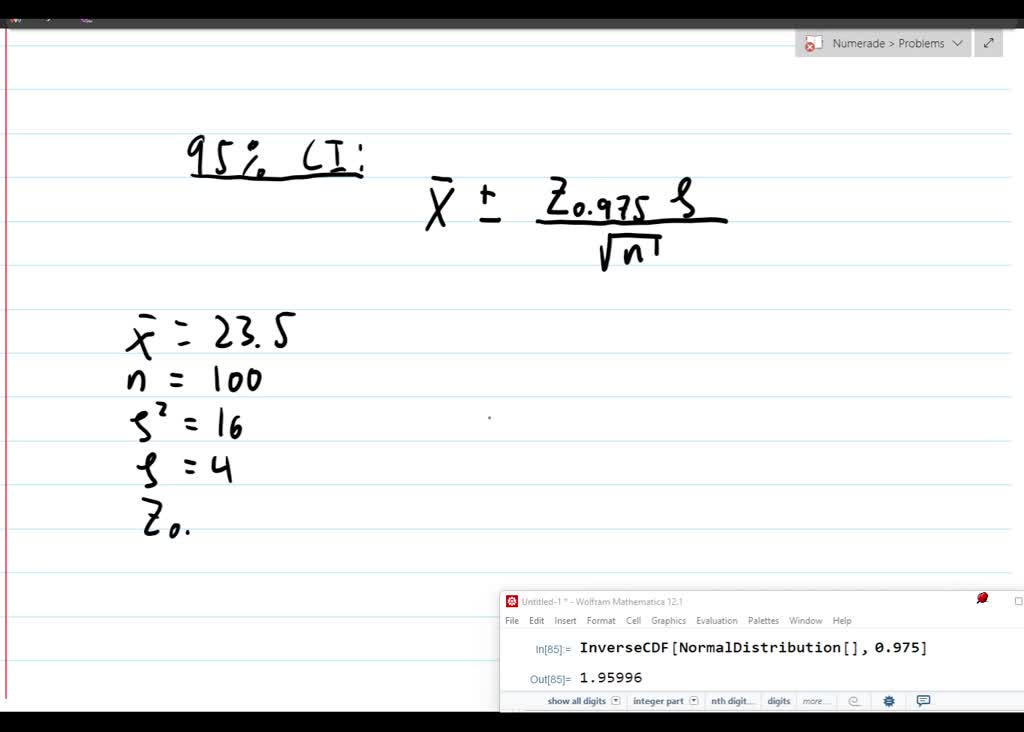 Numerade > Problems
95% CI:
X̄ ± Z0.975 S
√n
x̄ = 23.5
n = 100
S² = 16
S = 4
Z0.
Untitled-1 * - Wolfram Mathematica 12.1
File Edit Insert Format Cell Graphics Evaluation Palettes Window Help
In[85]:= InverseCDF[NormalDistribution[], 0.975]
Out[85]= 1.95996
show all digits integer part nth digit... digits more...